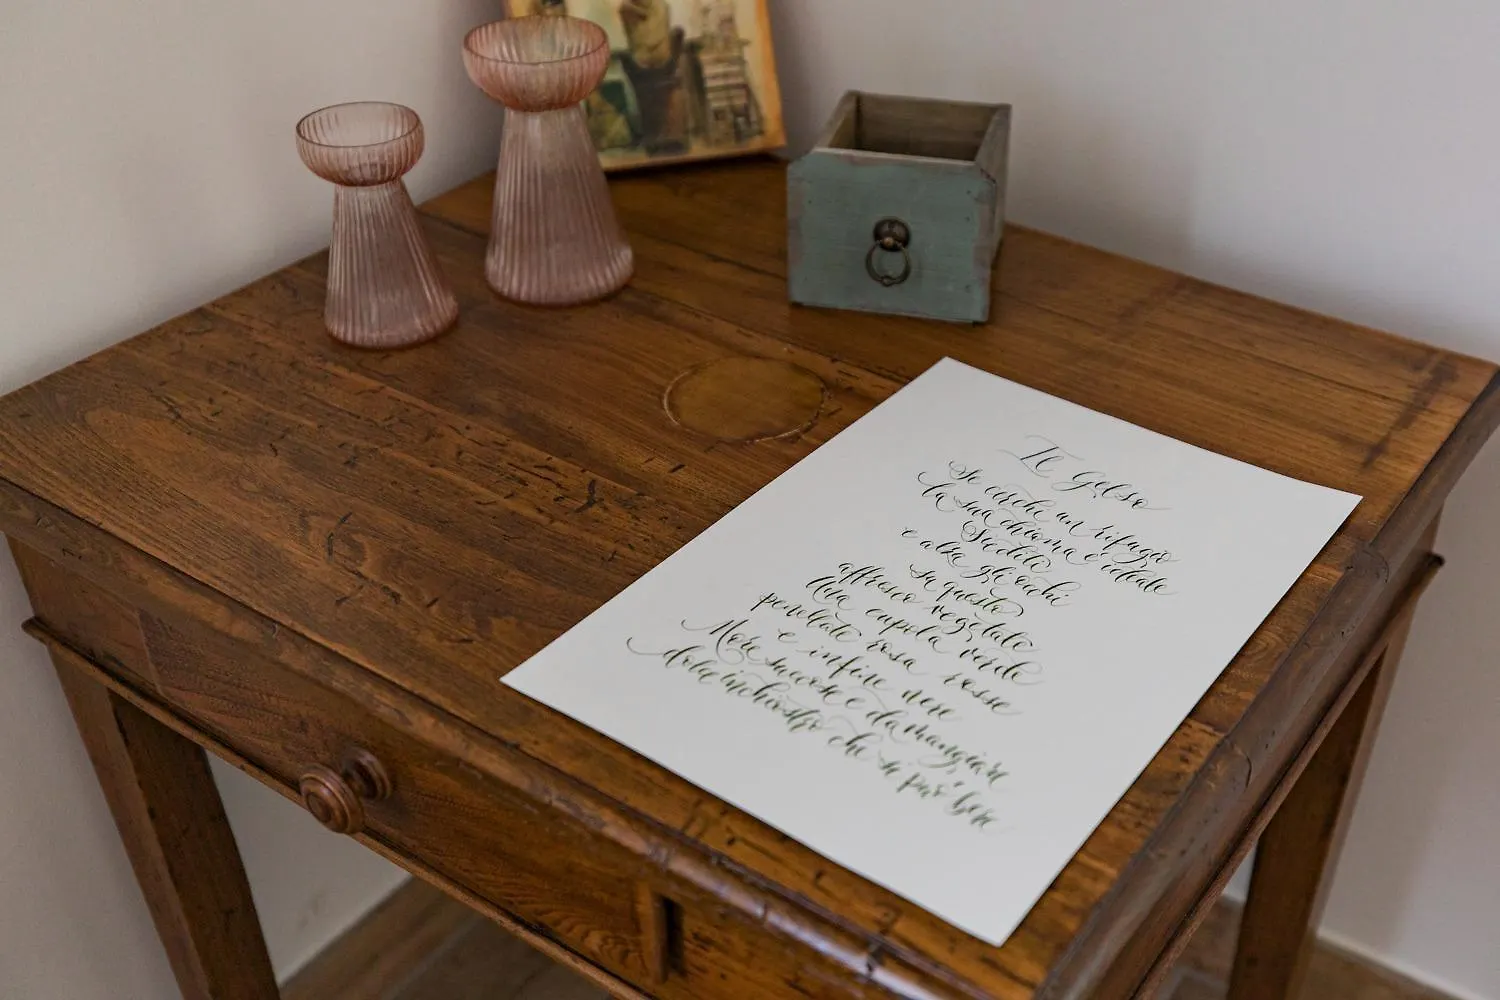 Il Gelso
Se cerchi un rifugio
la sua chioma è ideale
Siediti
e alza gli occhi
su questo
affresco vegetale
Una cupola verde
pennellate rosa rosse
e infine nere
More succose da mangiare
dolce inchiostro che si può bere